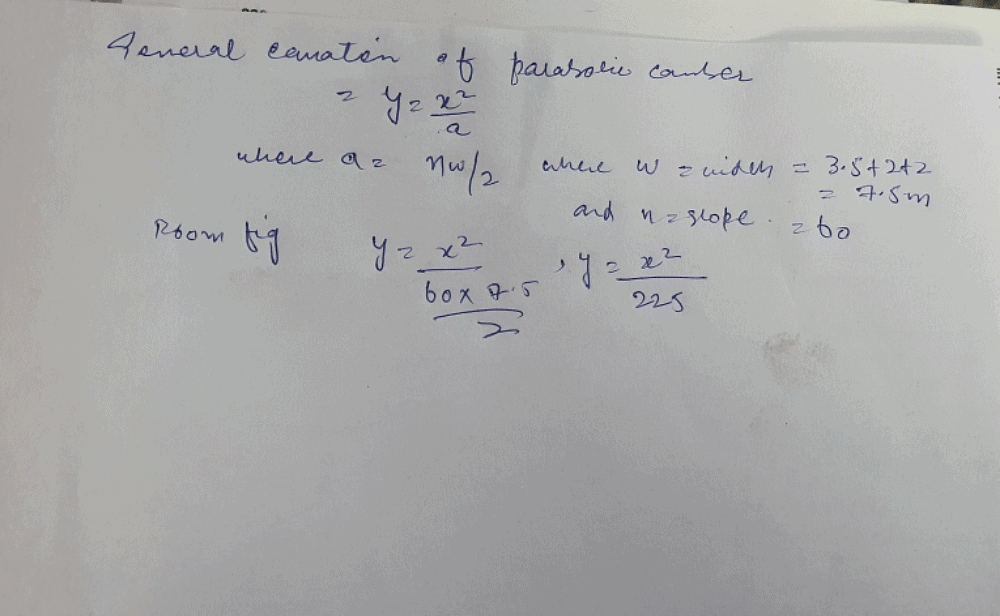 General equation of parabolic camber
= y = x²/a
where a = nw/2 where w = width = 3.5+2+2
= 7.5m
and n = slope. = 60
From fig y = x²/(60 x 7.5/2) , y = x²/225